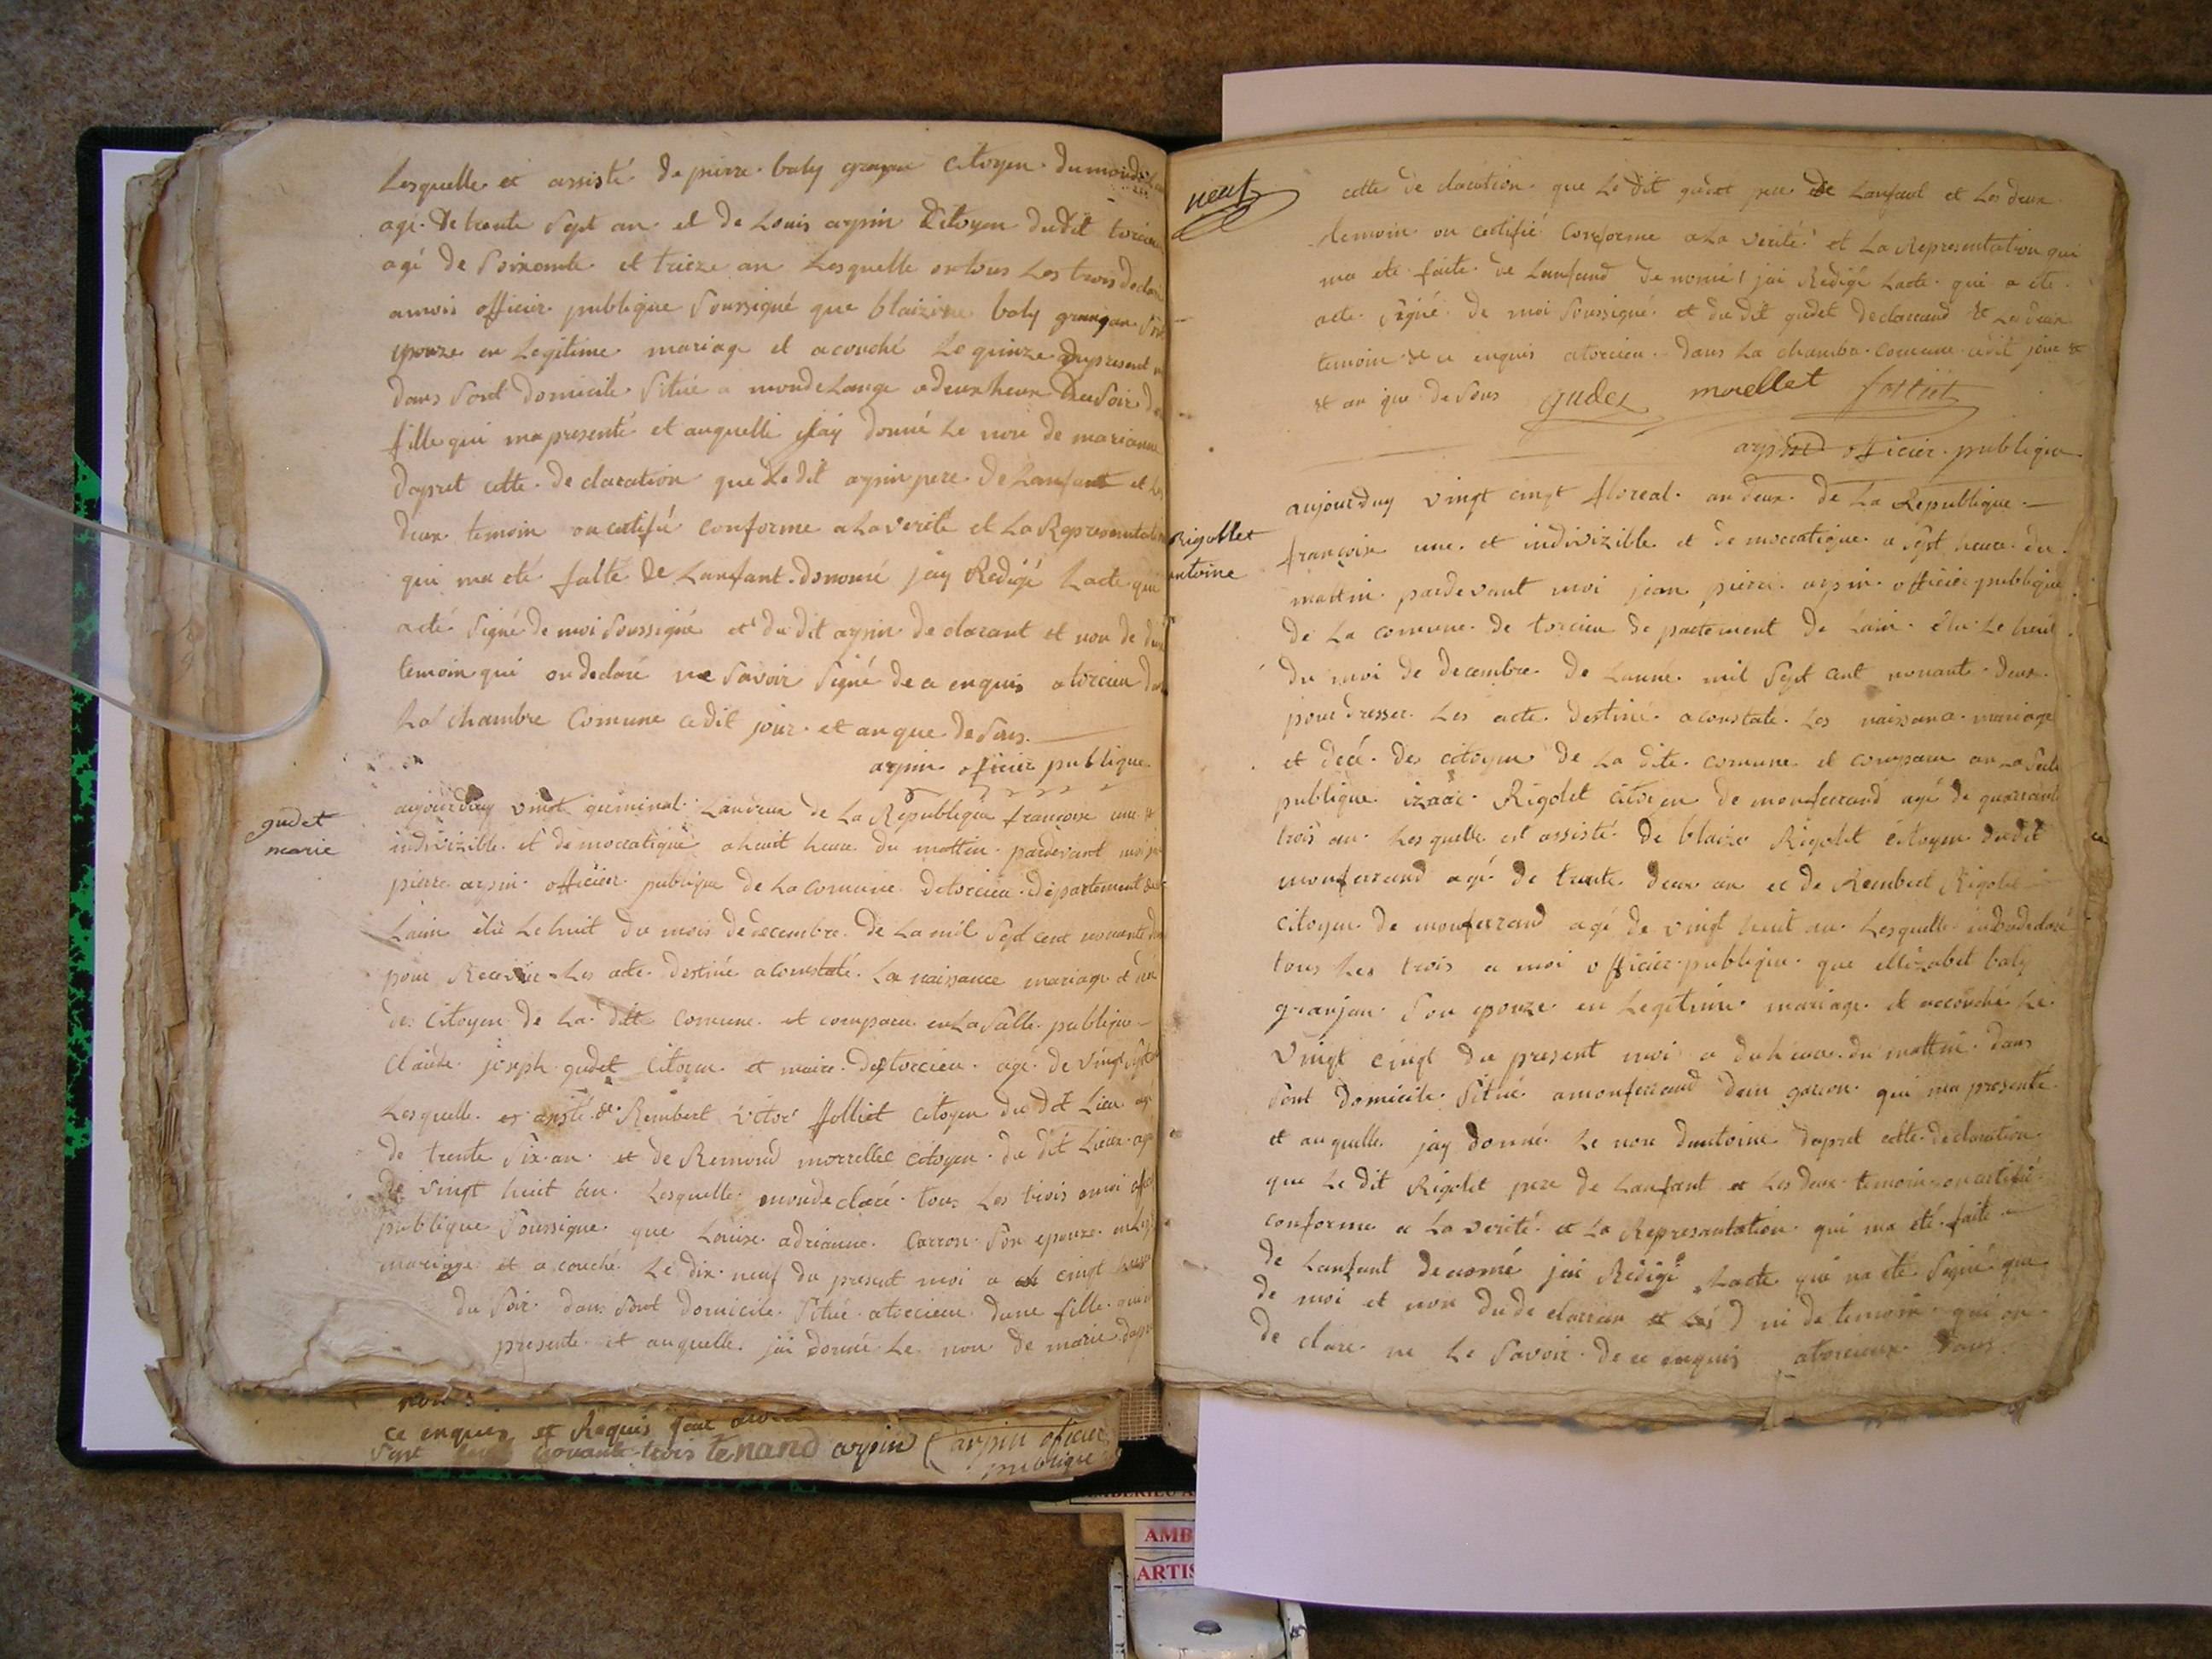 Lesquelle et assisté de pierre baly granjan citoyen du monde
agé de trente Sept an et de Louis arpin Citoyen dudit torcieu
agé de Soixente et trieze an Lesquelle on tous Les trois declar
a mois officier publique Soussigné que blaizine baly granjan Son
epouze en Legitime mariage et acouché Le quinze du present
dans Sont domicile Situé a monde Lange a deux heur du Soir d
fille qui ma presenté et auquelli jay donné Le non de marianne
dapret cette declaration que Le dit arpin pere de Lanfant et les
deux temoin on certifié conforme a La verité et La Representation
qui ma eté faite de Lanfant denomé jay Redigé Lacte qui
acté Signé de moi Soussigné et du dit arpin declarant et non de deux
temoin qui on declaré ne Savoir Signé de ce enquis a torcieu dans
La chambre Comune cedit jour et an que de Sus
arpin oficier publique
gudet
marie
aujourduy vingt germinal Landeux de La Republique francoise une et
indivizible et democratique a huit heure du mattin pardevant moi
pierre arpin officier publique de La comune de torcieu departement de
Lain élù Le huit du mois de decembre de La mil Sept cent nonante
pour Recevoir Les acte destiné a constaté La naissance mariage et
des Citoyen de La dite comune et comparu en La Salle publique
Claude joseph gudet Citoyen et maire de torcieu agé de vingt Sept
Lesquelle et assisté de Rembert victor folliet citoyen du dit Lieu agé
de trente Six an et de Remond morellet citoyen du dit Lieu agé
de vingt huit an Lesquelle mon declaré tous Les trois a moi
publique Soussigne que Louise adrianne Carron Son epouze en
mariage et a couché Le dix neuf du present moi a cinqt heure
du Soir dans Sont domicile Situé a torcieu dune fille qui
presenté et auquelle jai donné Le non de marie dapret
ce enquis et Requis
nonante trois tenand arpin arpin oficier
publique
neuf
cette declaration que Le dit gudet pere de Lanfant et Les deux
temoin on certifié Conforme a La verité et La Representation qui
ma eté faite de Lanfand denomé jai Redigé Lacte qui a été
acte Signé de moi Soussigné et du dit gudet declarand et Les deux
temoin de ce enquis a torcieu dans La chambre comune cedit jour et
et an que de Sus gudet morellet folliet
arpin officier publique
Rigollet
antoine
aujourduy vingt cinqt floreal an deux de La Republique
françoise une et indivizible et democratique a Sept heure du
mattin pardevant moi jean pierre arpin officier publique
de La comune de torcieu departement de Lain élu Le huit
du moi de decembre de Lanné mil Sept cent nonant deux
pour dresser Les acte destiné a constaté Les naissance mariage
et décé des citoyen de La dite comune et comparu en La Salle
publique izaac Rigolet Citoyen de monferrand agé de quarrante
trois an Lesquelle est assisté de blaize Rigolet citoyen dudit
monferrand agé de trente deux an et de Rembert Rigolet
citoyen de monferrand agé de vingt huit an Lesquelle declaré
tous Les trois a moi officier publique que ellizabet baly
granjan Son epouze en Legitime mariage et accouché Le
vingt cinqt du present moi a du heure du mattin dans
Sont domicile Situé a monferrand dun garcon qui ma presenté
et auquelle jay donné Le non dantoine dapret cette declaration
que Le dit Rigolet pere de Lanfant et Les deux temoin on certifié
conforme a La verité et La Representation qui ma été faite
de Lanfant denomé jai Rédigé Lacte qui na eté Signé que
de moi et non du declaran ni de temoin qui on
declare ne Le Savoir de ce enquis a torcieux dans
AMB
ARTIS